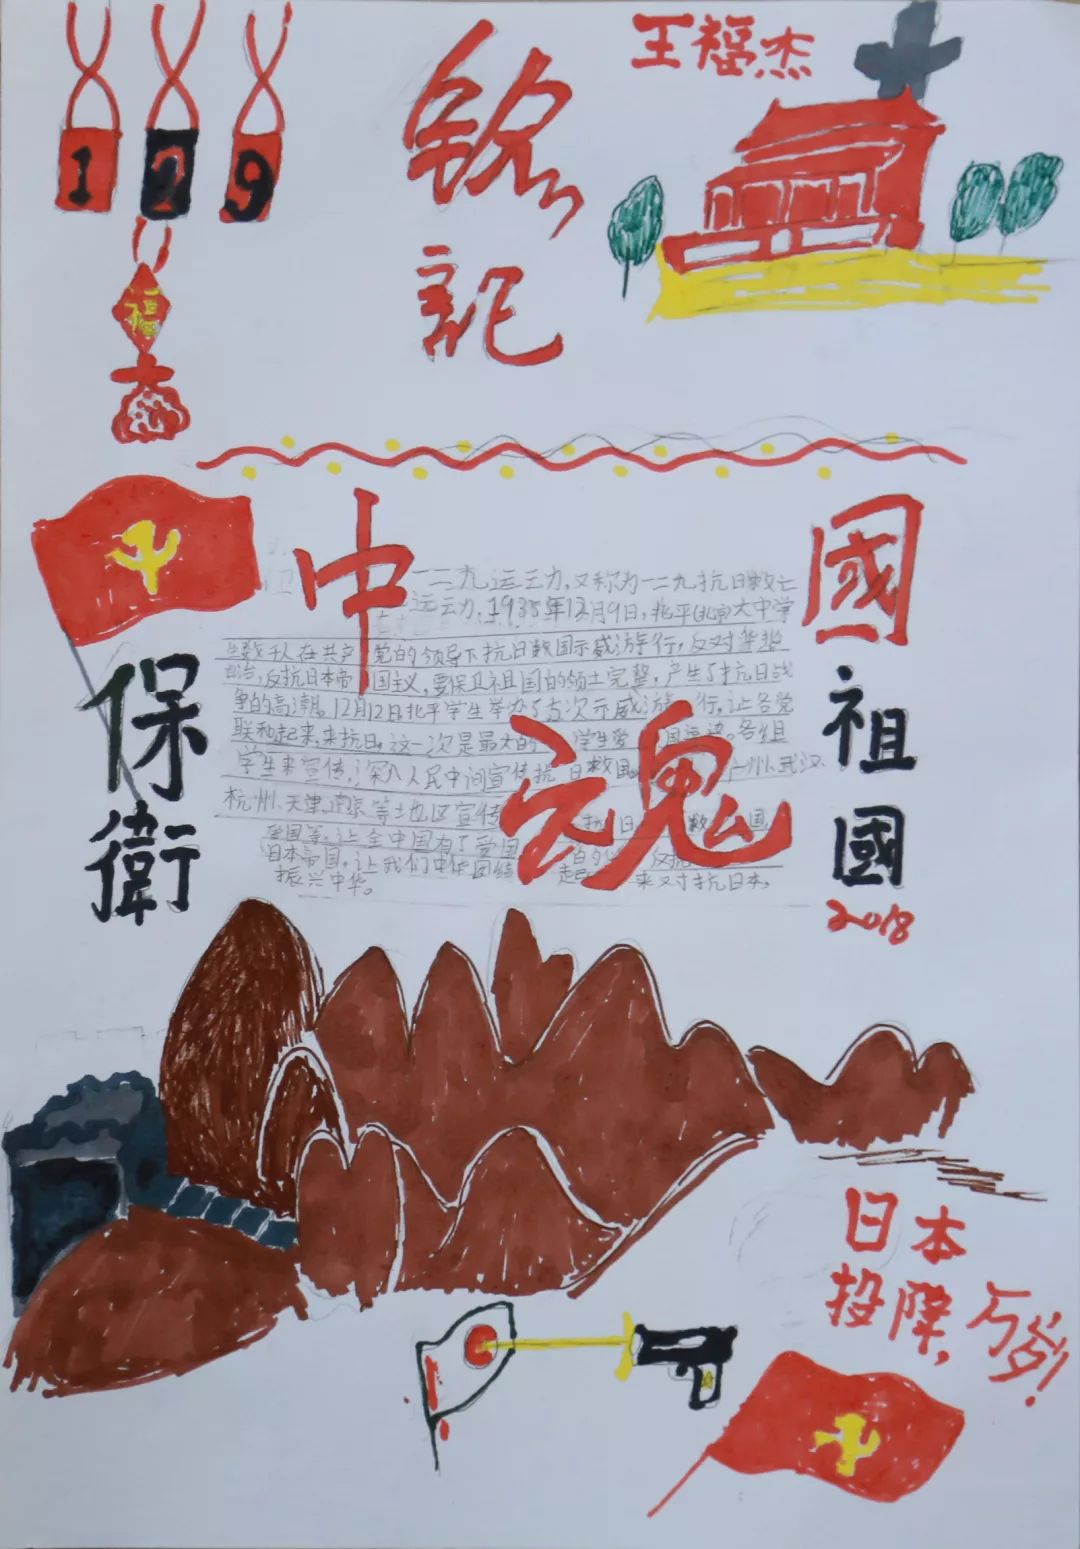 王福杰
1 2 9
福
铭
記
中
國
魂
保
衛
祖
國
2018
一二九运动，又称为一二九抗日救亡
运动，1935年12月9日，北平(北京)大中学
生数千人在共产党的领导下抗日救国示威游行，反对华北
自治，反抗日本帝国主义，要保卫祖国的领土完整，产生了抗日战
争的高潮。12月12日北平学生举办了5次示威游行。让各党
联和起来，来抗日。这一次是最大的学生爱国运动。各组
学生来宣传，深入人民中间宣传抗日救国。广州、武汉、
杭州、天津、南京等土地区宣传抗日救国
爱国等。让全中国有了爱国
日本帝国。让我们中华团结起来又对抗日本，
振兴中华。
日本
投降，万岁！